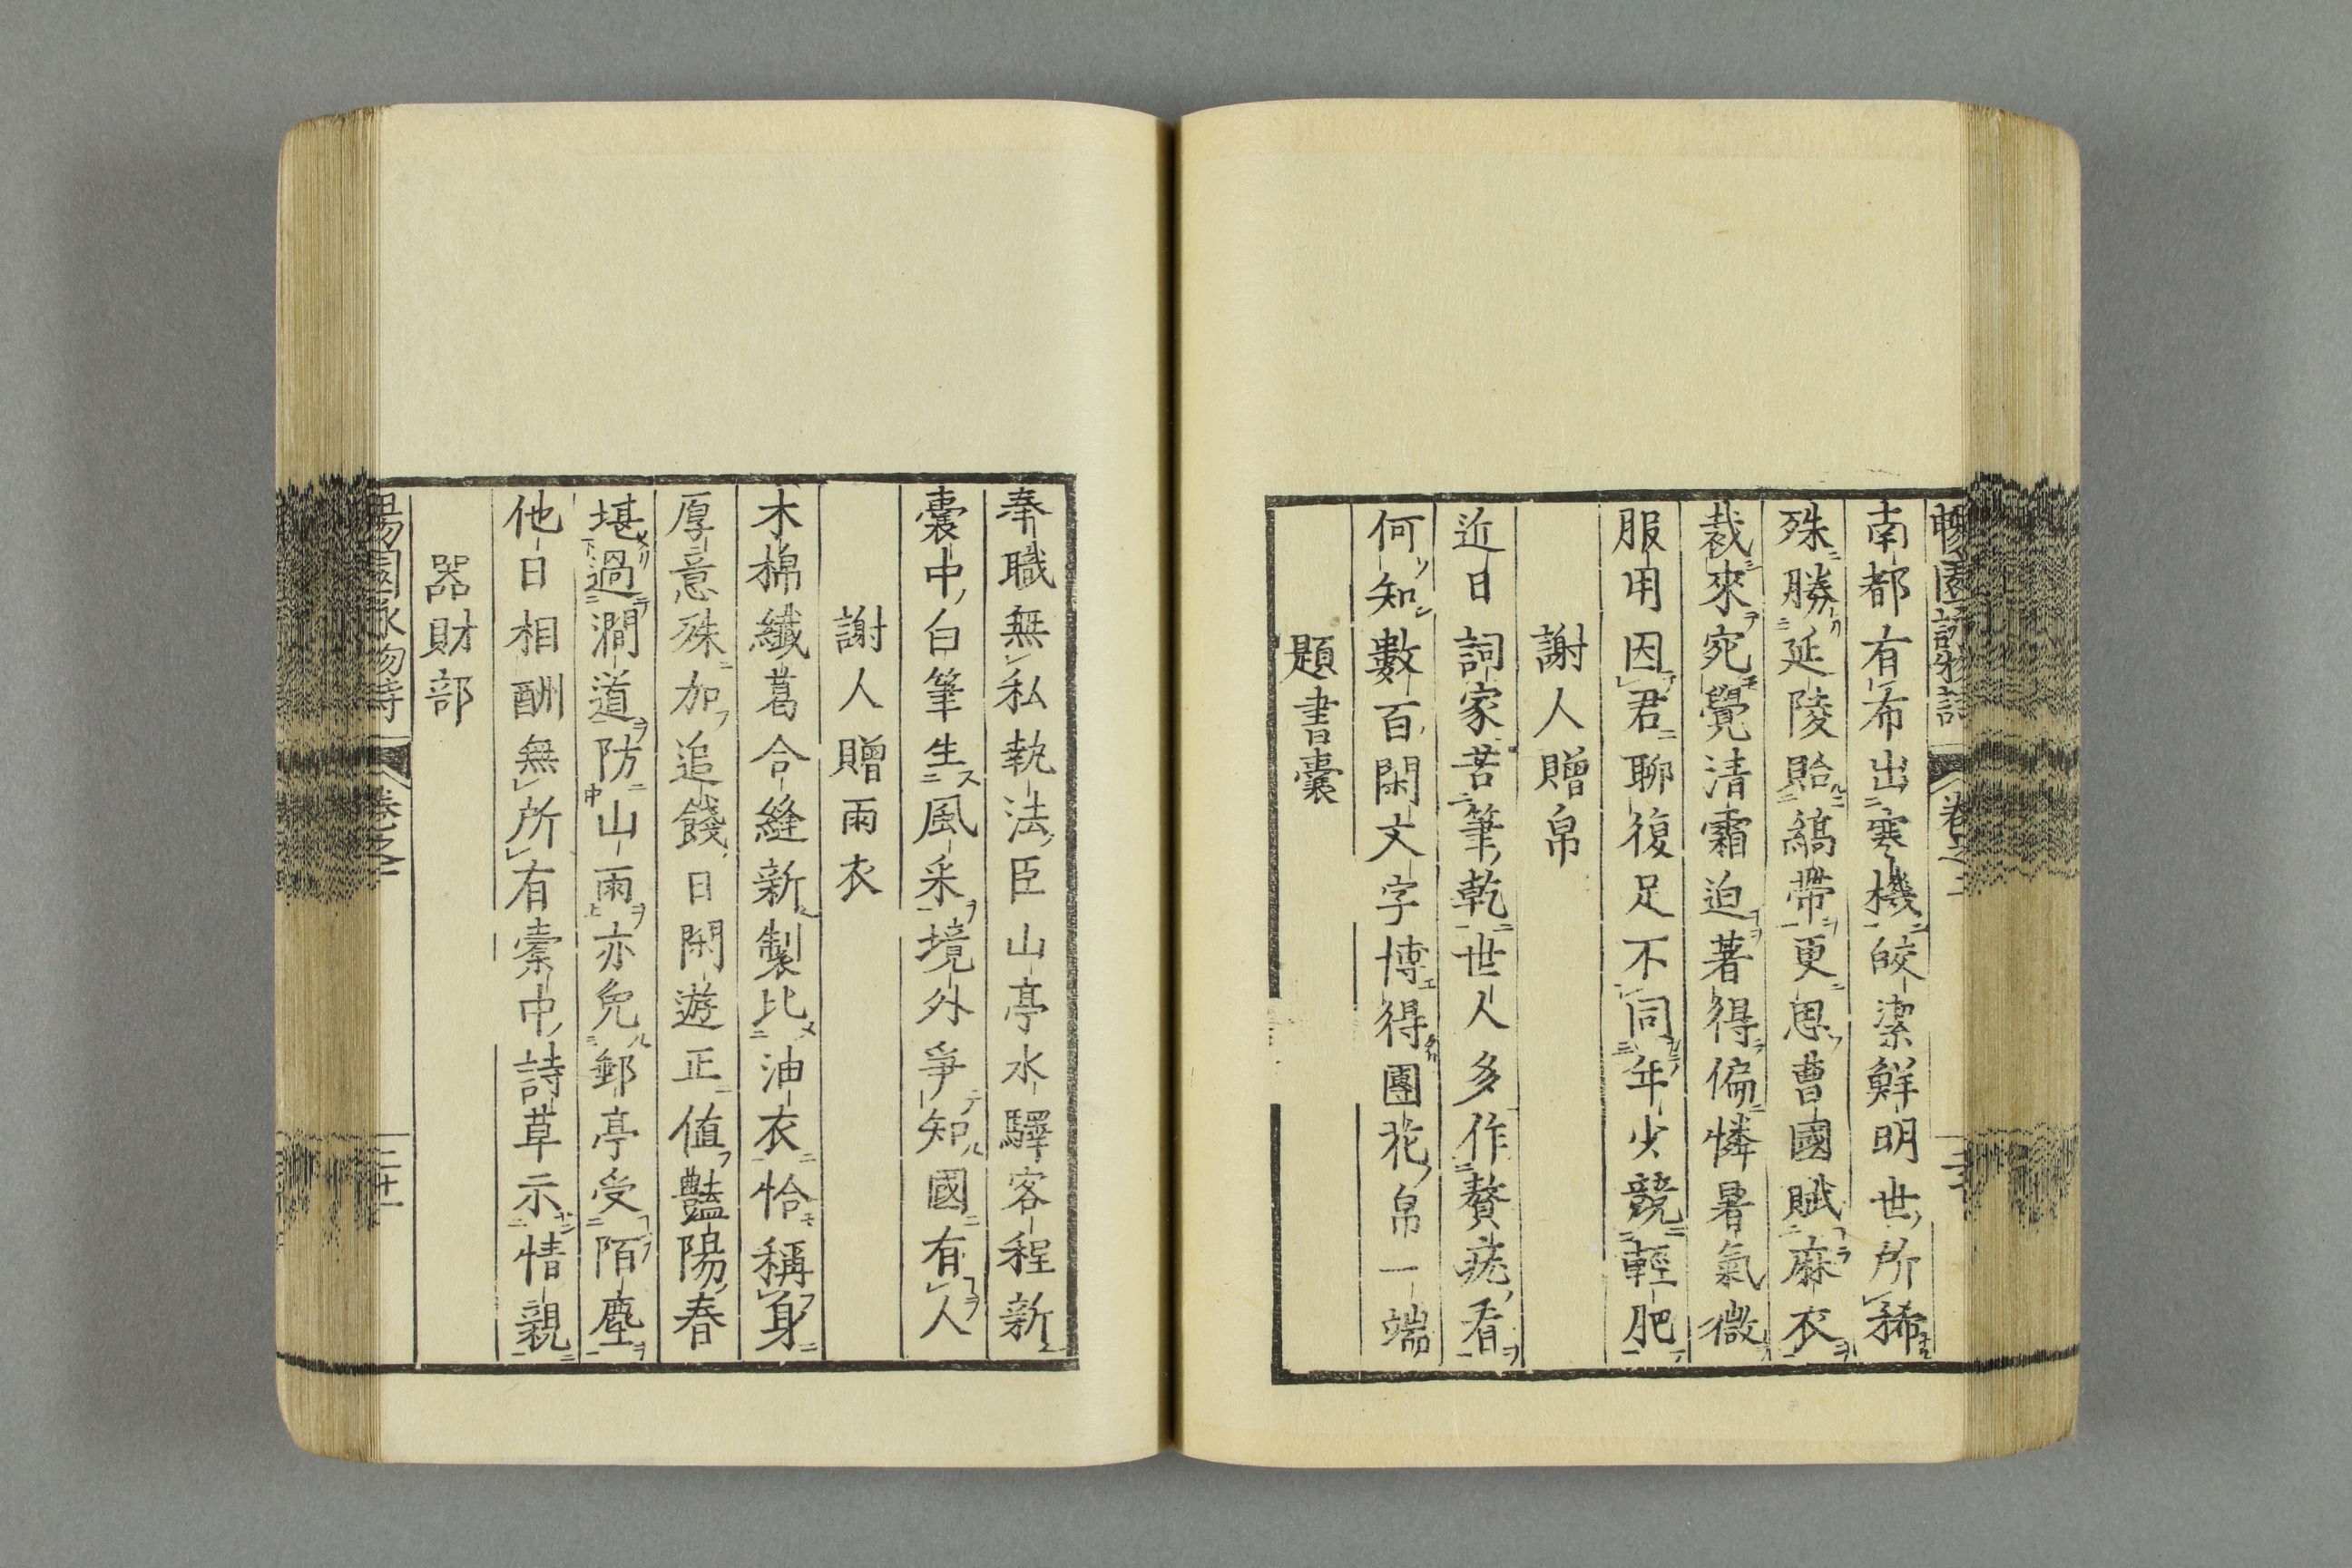 暢園詠物詩 卷之二
南都有希出寒機皎潔鮮明世所稀
殊勝延陵貽縞帶更思曹國賦麻衣
裁來宛覺清霜迫著得偏憐暑氣微
服用因君聊復足不同年少競輕肥
謝人贈帛
近日詞家苦筆乾世人多作贅疣看
何知數百閑文字博得團花帛一端
題書囊
奉職無私執法臣山亭水驛客程新
囊中白筆生風采境外爭知國有人
謝人贈雨衣
木棉纖葛合縫新製比油衣恰稱身
厚意殊加追餞日閑遊正值豔陽春
堪過澗道防山雨亦免郵亭受陌塵
他日相酬無所有橐中詩草示情親
器財部
暢園詠物詩 卷之二 二十一